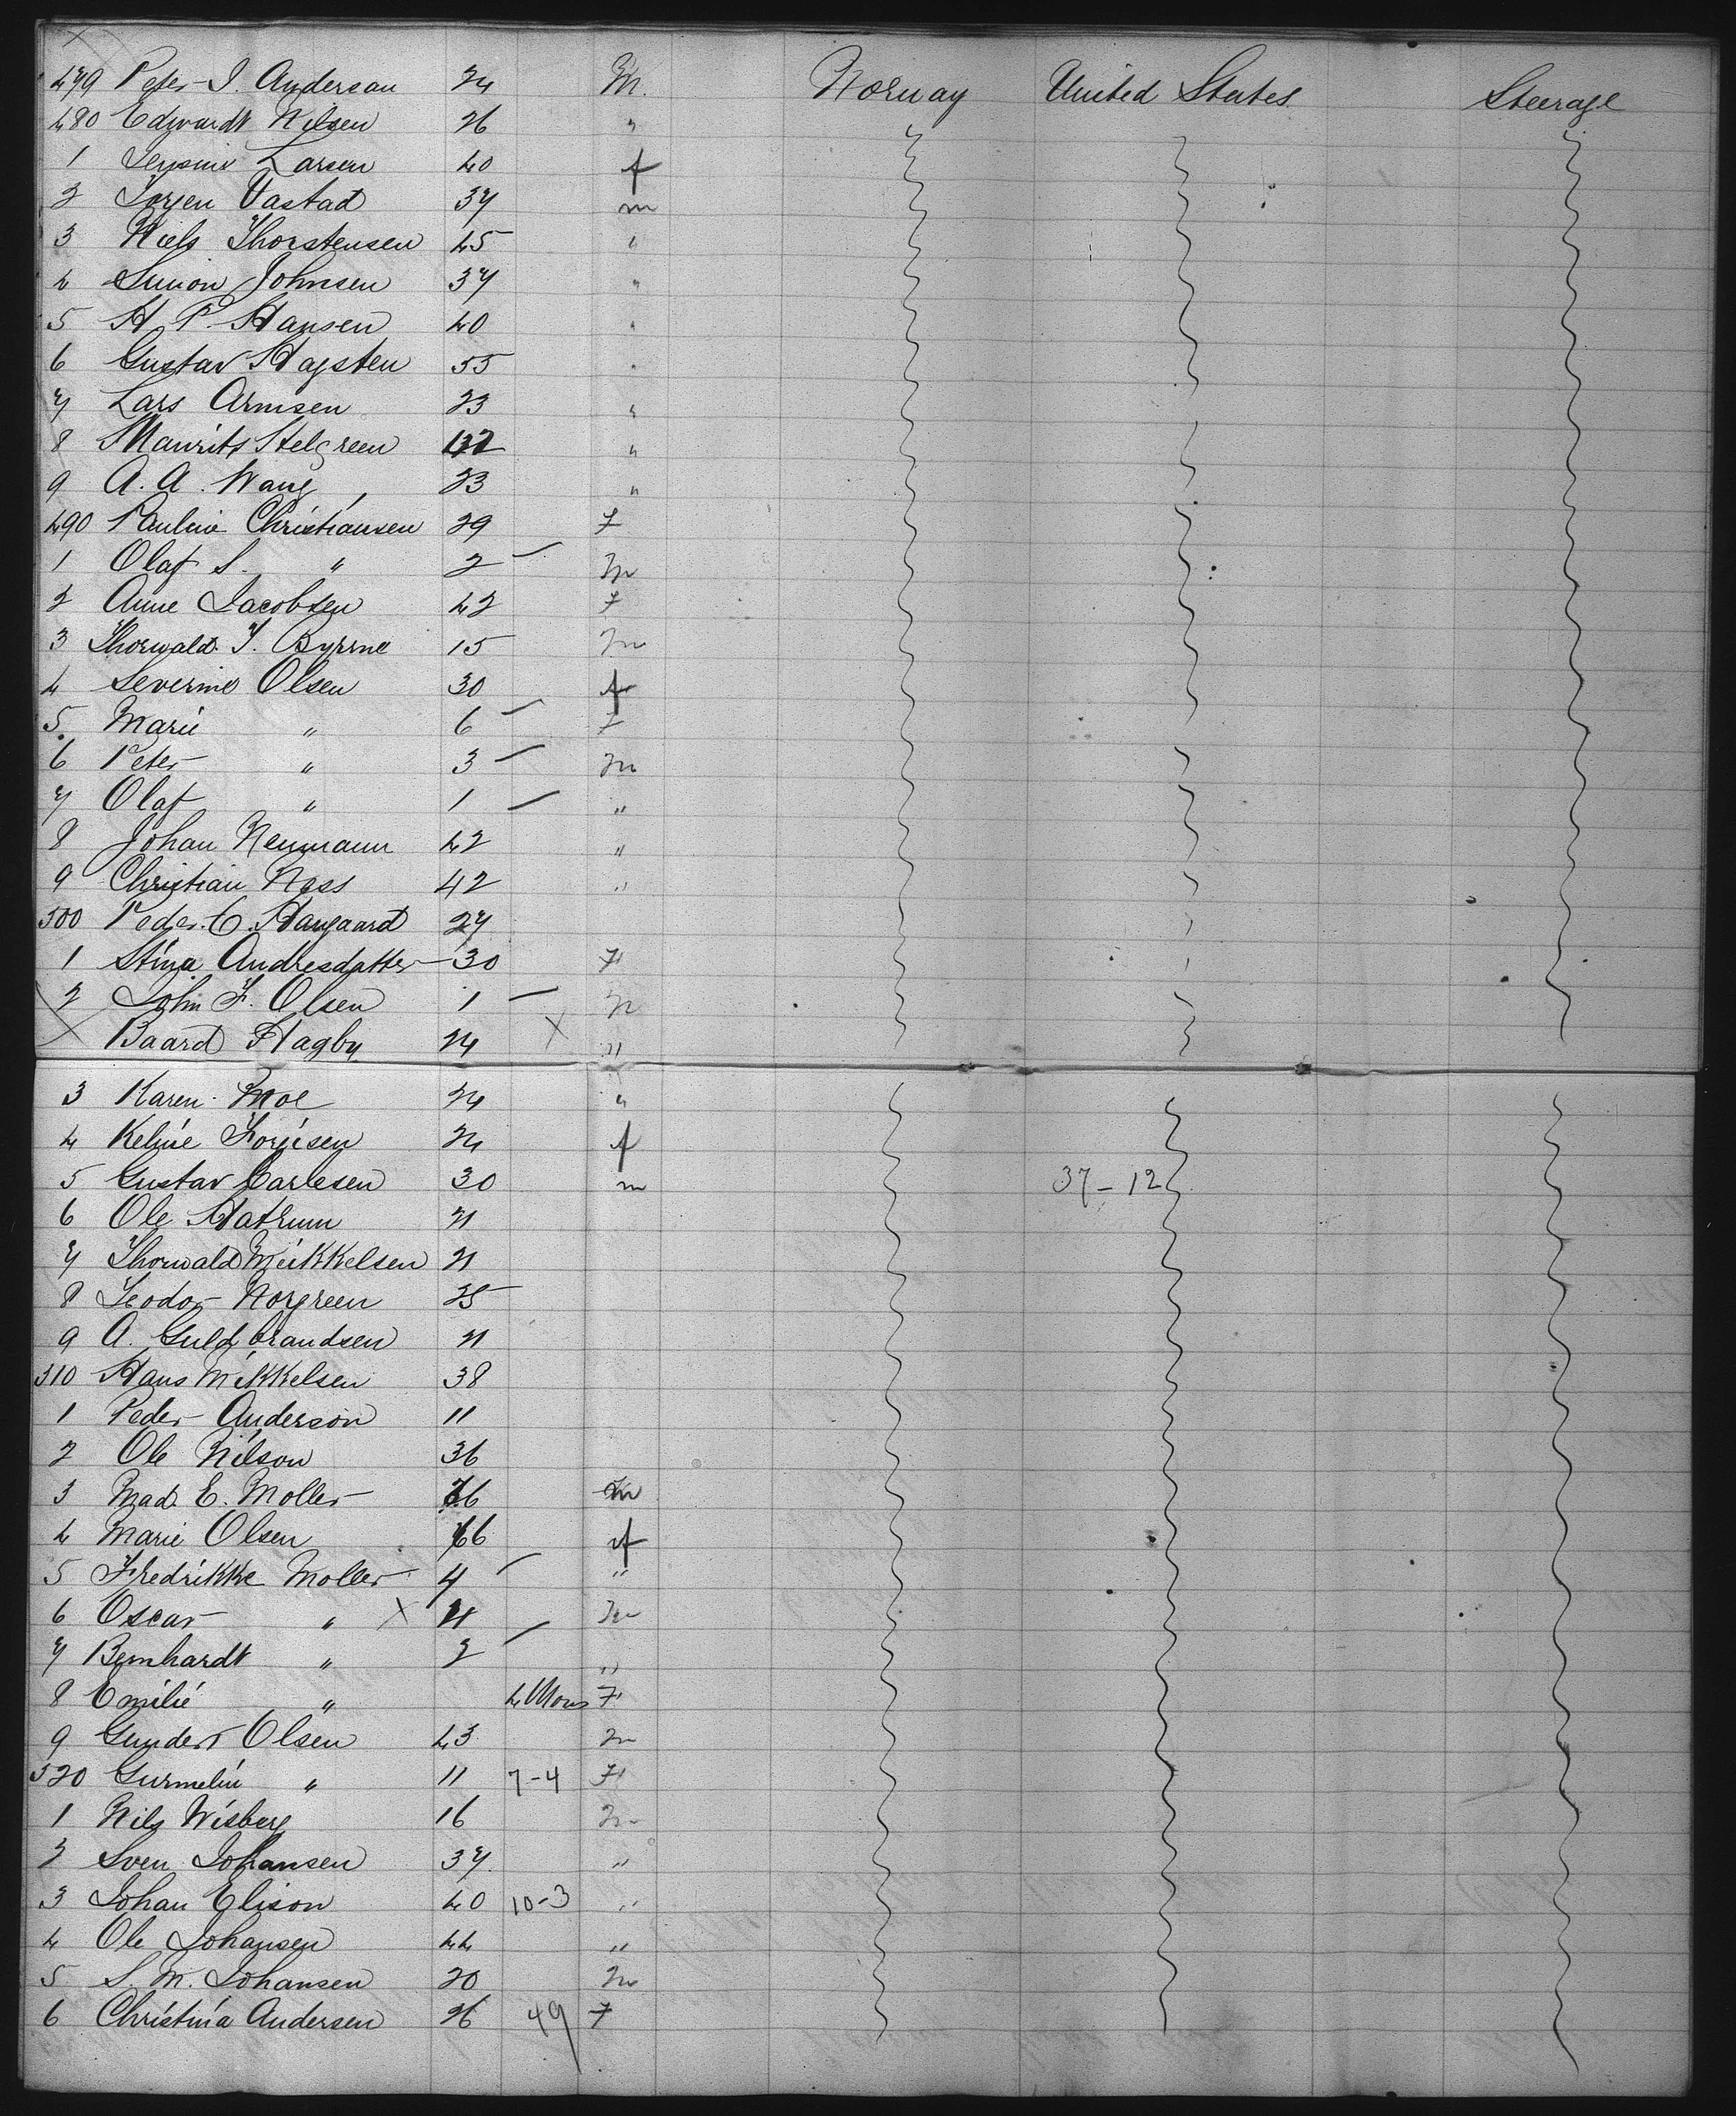 479 Peter J. Anderson 24 M. Norway United States Steerage
480 Edwardt Nilsen 26 "
1 Larsen 40 f
2 Jorgen Vastad 37 m
3 Niels Thorstensen 45 "
4 Simon Johnsen 37 "
5 H P. Hansen 40 "
6 Gustav Hagsten 55 "
7 Lars Arnisen 23 "
8 Maurits Helgreen "
9 A. A. Wang 23 "
490 Pauline Christiansen 29 F
1 Olaf S. " 2 — m
2 Anne Jacobsen 42 F
3 Thorwald J. Byrrne 15 m
4 Severine Olsen 30 f
5. Marie " 6 — F
6 Peter " 3 — m
7 Olaf " 1 — "
8 Johan Neumann 42 "
9 Christian Nass 42 "
500 Peder C. Haugaard 27
1 Stina Andresdatter 30 F
2 John F. Olsen 1 — m
X Baard Hagby 24 X "
3 Karen Moe 24 "
4 Keline 24 f
5 Gustav Carlesen 30 m 37-12
6 Ole Hatrum 21
7 Thorwald Meikkelsen 21
8 Teodor Norgreen 25
9 A. Guldbrandsen 21
510 Hans Mikkelsen 38
1 Peder Anderson 11
2 Ole Nilson 36
3 Mad. E. Moller m
4 Marie Olsen 66 f
5 Fredrikke Moller 4 — "
6 Oscar " X m
7 Bernhardt " 2 — "
8 Emilie " 4 Mons F
9 Gunder Olsen 43 m
520 " 11 7-4 F
1 Nils Wisberg 16 m
2 Sven Johansen 37 "
3 Johan Elison 40 10-3 "
4 Ole Johansen 44 "
5 S. M. Johansen 20 m
6 Christina Andersen 26 49 F